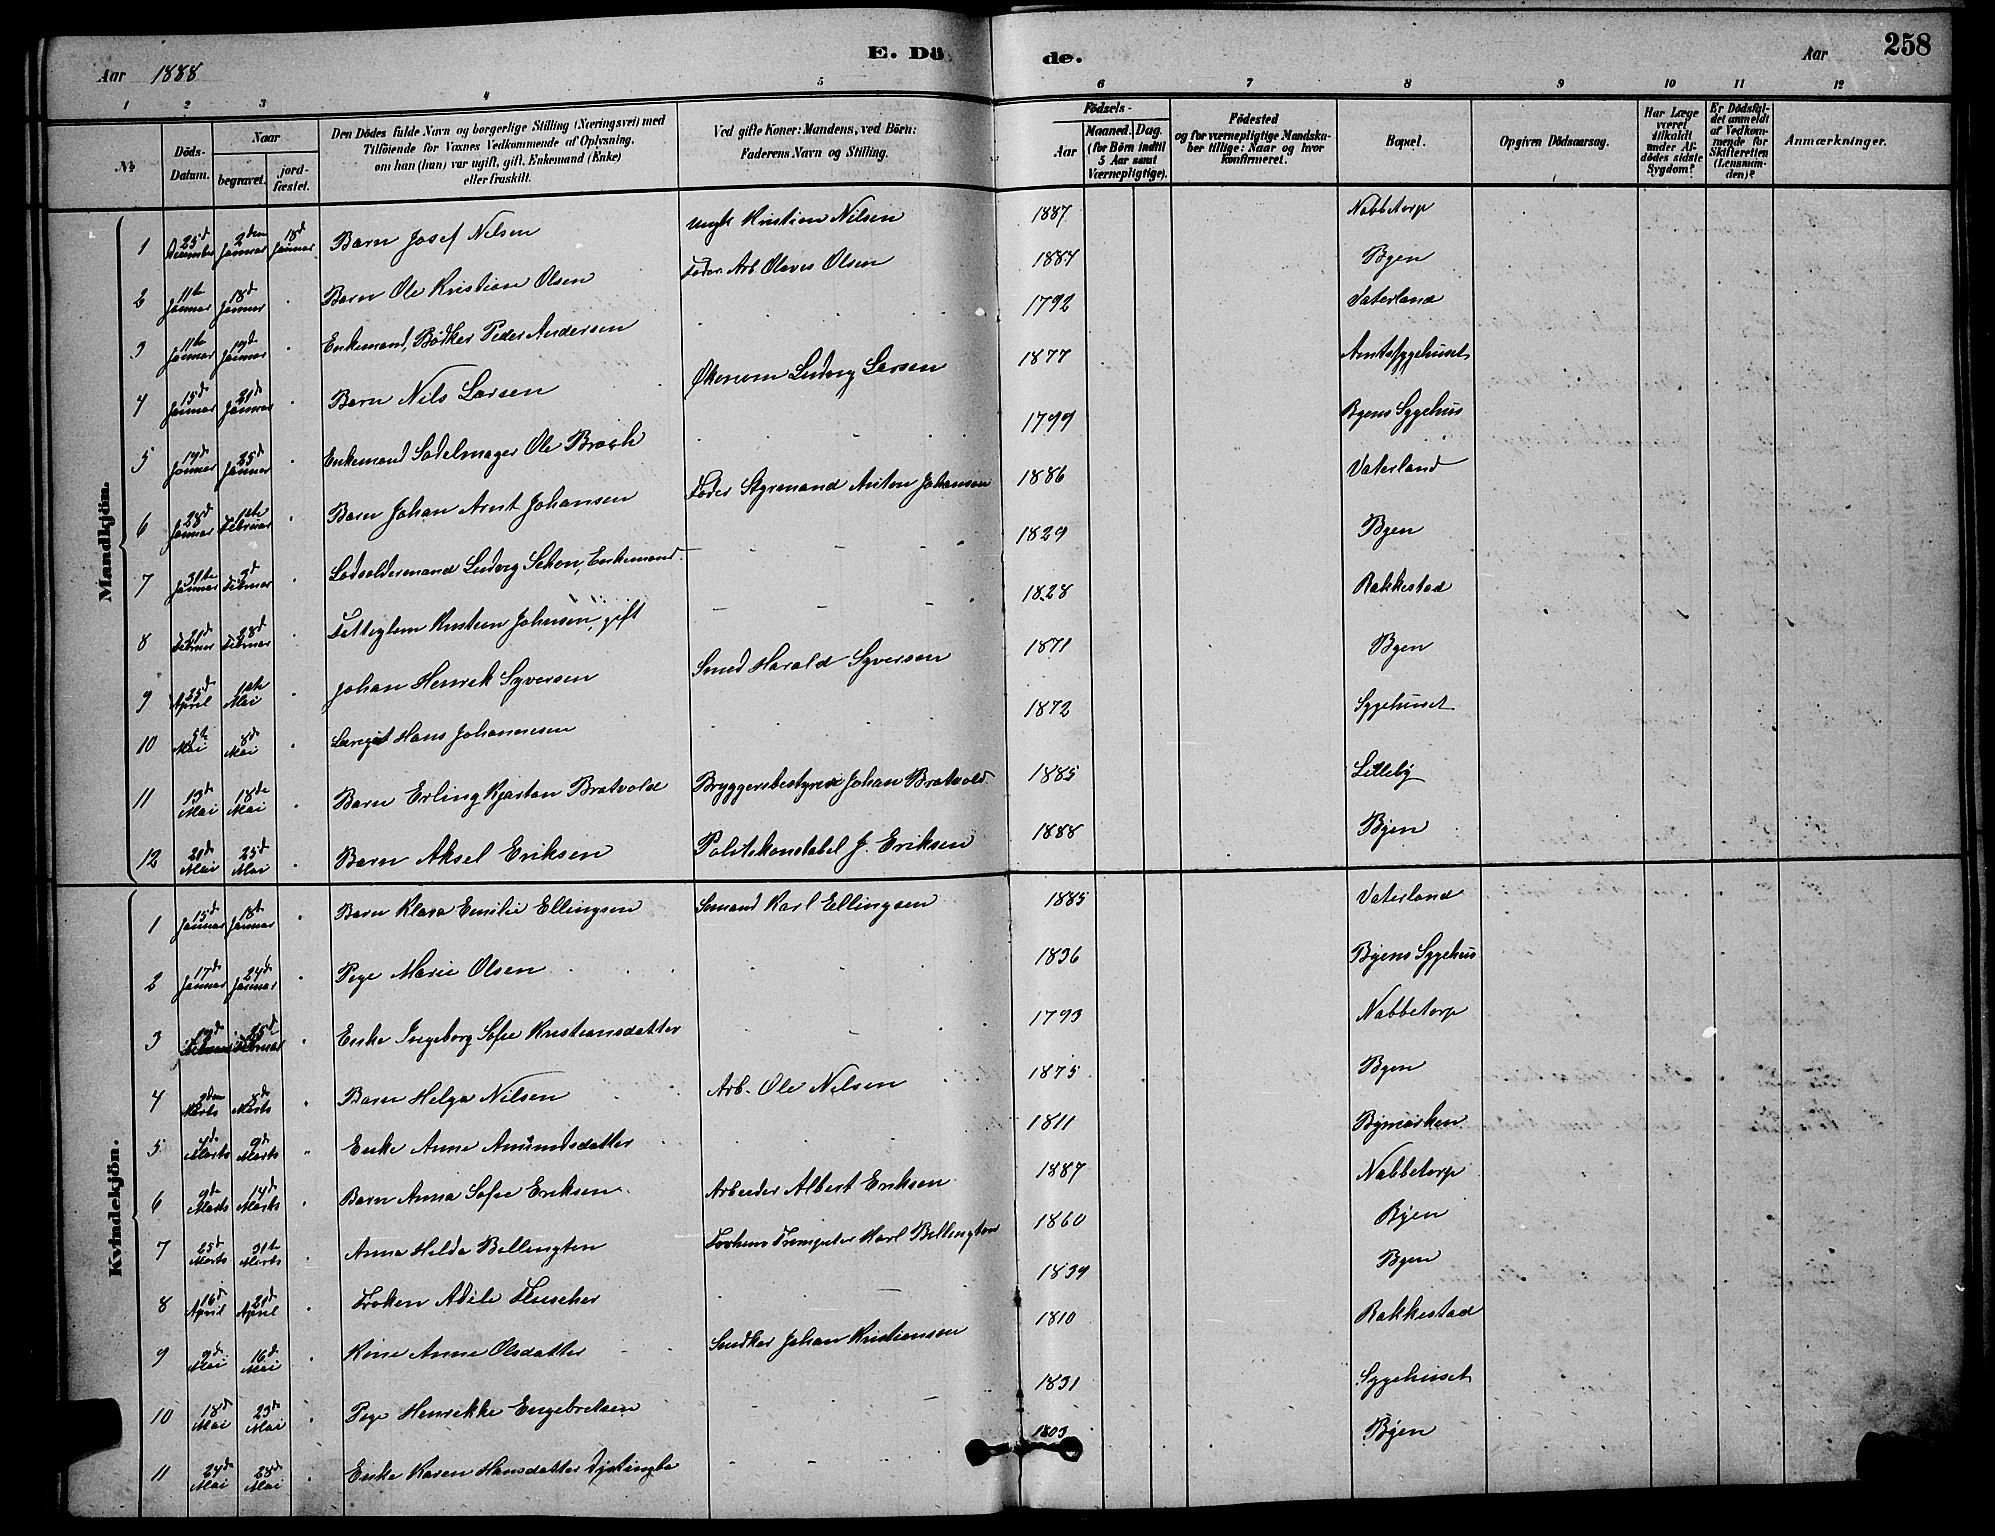 E. Döde.
Aar 1888
Aar 258
1 2 3 4 5 6 7 8 9 10 11 12
№
Döds-Datum.
Naar
begravet.
jordfæstet.
Den Dödes fulde Navn og borgerlige Stilling (Næringsvei) med Tilföiende for Voxnes Vedkommende af Oplysning, om han (hun) var ugift, gift, Enkemand (Enke) eller fraskilt.
Ved gifte Koner: Mandens, ved Börn: Faderens Navn og Stilling.
Födsels-
Aar
Maaned. Dag.
(for Börn indtil 5 Aar samt Værnepligtige).
Födested og for værnepligtige Mandskaber tillige: Naar og hvor konfirmeret.
Bopæl.
Opgiven Dödsaarsag.
Har Læge været tilkaldt under Afdödes sidste Sygdom?
Er Dödsfaldet anmeldt af Vedkommende for Skifteretten (Lensmanden)?
Anmærkninger.
Mandkjön.
1 25d December 2den Januar 18d Januar Barn Josef Nilsen Kristian Nilsen 1887 Nabbetorp
2 11te Januar 18d Januar Barn Ole Kristian Olsen Fader Arb Olaves Olsen 1884 Byen
3 11te Januar 19d Januar Enkemand, Bödker Peder Andersen 1792 Vaterland
4 15d Januar 21d Januar Barn Nils Larsen Økonom Ludvig Larsen 1877 Amtssygehuset
5 19d Januar 25d Januar Enkemand Sadelmager Ole Brach 1799 Byens Sygehus
6 28d Januar Februar Barn Johan Arnt Johansen Fader Styrmand Anton Johansen 1886 Vaterland
7 31te Januar 9d Februar Lodsoldermand Ludvig Schon, Enkemand 1829 Byen
8 21d Februar 28d Februar Fattiglem Kristian Johansen, gift 1828 Rakkestad
9 25d April Mai Johan Henrik Syversen Smed Harald Syversen 1871 Byen
10 5te Mai 8d Mai Hans Johannesen 1872 Sygehuset
11 13d Mai 18de Mai Barn Erling Kjartan Bratvold Bryggeribestyrer Johan Bratvold 1885 Lilleby
12 20d Mai 25d Mai Barn Aksel Eriksen Politikonstabel J. Eriksen 1888 Byen
Kvindekjön.
1 15d Januar 18de Januar Barn Klara Emilie Ellingsen Sømand Karl Ellingsen 1885 Vaterland
2 17de Januar 24d Januar Pige Marie Olsen 1836 Byens Sygehus
3 19d Februar 25d Februar Enke Ingeborg Sofie Kristiansdatter 1793 Nabbetorp
4 2den Marts 8de Marts Barn Helga Nilsen Arb. Ole Nilsen 1875 Byen
5 4de Marts 9d Marts Enke Anne Amundsdatter 1811 Bymarken
6 9de Marts 14d Marts Barn Anna Sofie Eriksen Arbeider Albert Eriksen 1887 Nabbetorp
7 25d Marts 31te Marts Anna Hilda Billington Trompeter Karl Billington 1860 Byen
8 16d April 21d April Frøken Adele Fluscher 1839 Byen
9 9d Mai 16d Mai Kone Anne Olsdatter Johan Kristiansen 1810 Rakkestad
10 18d Mai 23d Mai Pige Henrikke Engebretsen 1831 Sygehuset
11 24d Mai 28d Mai Enke Karen Hansdatter 1803 Byen